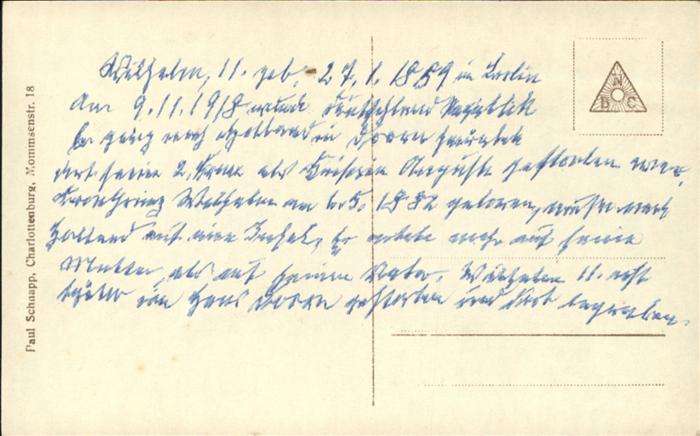 Wilhelm, II. geb. 27.1.1859 in Berlin
Am 9.11.1918 wurde Deutschland Republik
Er ging nach Holland in Doorn
dort seine 2. Frau als Kaiserin Auguste gestorben war.
Kronprinz Wilhelm am 6.5.1882 geboren, mußte nach
Holland auf eine Insel. Er mehr auf seine
Mutter, als auf seinen Vater. Wilhelm II. ist
später in Haus Doorn gestorben und dort begraben.
N
B C
Paul Schnapp, Charlottenburg, Mommsenstr. 18